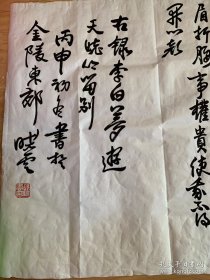 眉折腰事權貴使我不得
開心顏
右錄李白夢遊
天姥吟留別
丙申初冬書於
金陵東郊 曉雲